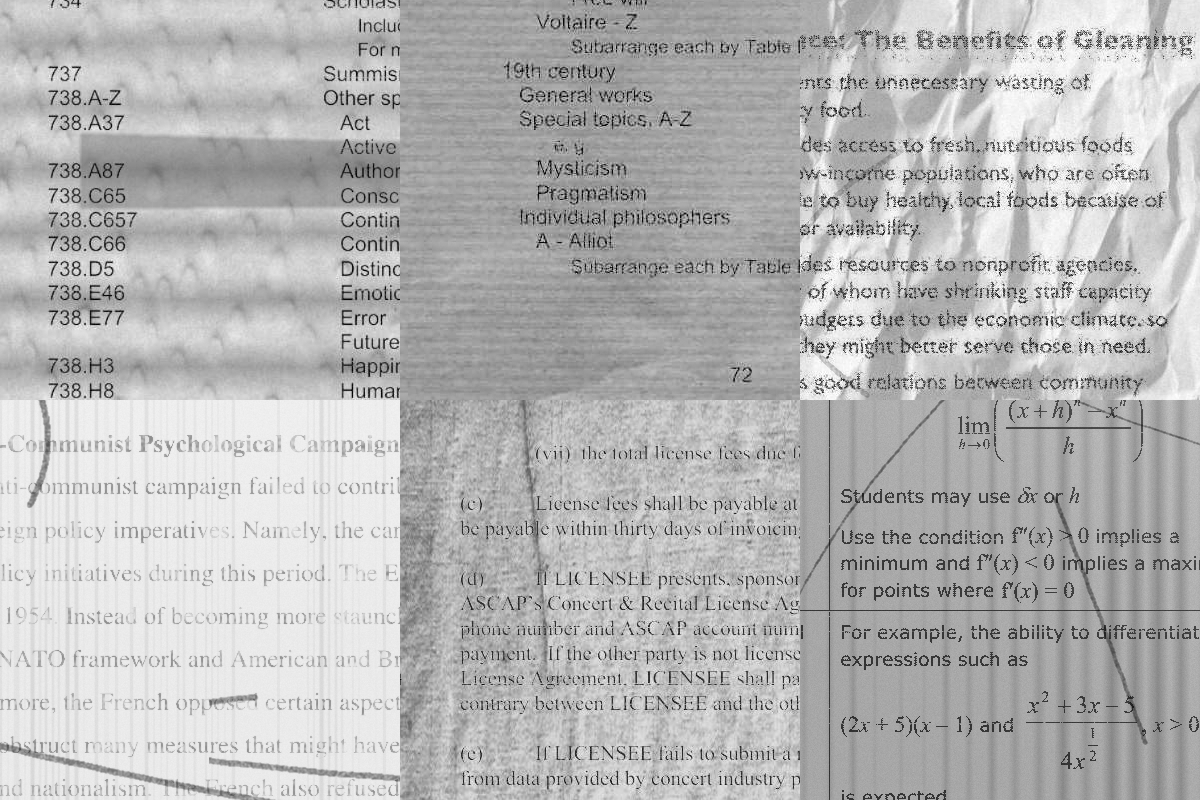 734 Scholas
Inclu
For n
737 Summis
738.A-Z Other sp
738.A37 Act
Active
738.A87 Author
738.C65 Consc
738.C657 Contin
738.C66 Contin
738.D5 Distinc
738.E46 Emotic
738.E77 Error
Future
738.H3 Happin
738.H8 Human
Free will
Voltaire - Z
Subarrange each by Table
19th century
General works
Special topics, A-Z
e. g.
Mysticism
Pragmatism
Individual philosophers
A - Alliot
Subarrange each by Table
72
The Benefits of Gleaning
ents the unnecessary wasting of
y food.
des access to fresh, nutritious foods
ow-income populations, who are often
le to buy healthy, local foods because of
or availability.
des resources to nonprofit agencies,
of whom have shrinking staff capacity
udgets due to the economic climate, so
they might better serve those in need.
s good relations between community
-Communist Psychological Campaign
nti-communist campaign failed to contrib
eign policy imperatives. Namely, the cam
licy initiatives during this period. The E
1954. Instead of becoming more staunc
NATO framework and American and Br
more, the French opposed certain aspect
obstruct many measures that might have
nd nationalism. The French also refused
(vii) the total license fees due f
(c) License fees shall be payable at
be payable within thirty days of invoicing
(d) If LICENSEE presents, sponsor
ASCAP's Concert & Recital License Ag
phone number and ASCAP account num
payment. If the other party is not license
License Agreement, LICENSEE shall pa
contrary between LICENSEE and the oth
(e) If LICENSEE fails to submit a r
from data provided by concert industry p
lim h→0 ( ((x + h)^n − x^n) / h )
Students may use δx or h
Use the condition f″(x) > 0 implies a
minimum and f″(x) < 0 implies a maxi
for points where f′(x) = 0
For example, the ability to differentiat
expressions such as
(2x + 5)(x − 1) and (x² + 3x − 5) / (4x^(1/2)), x > 0
is expected